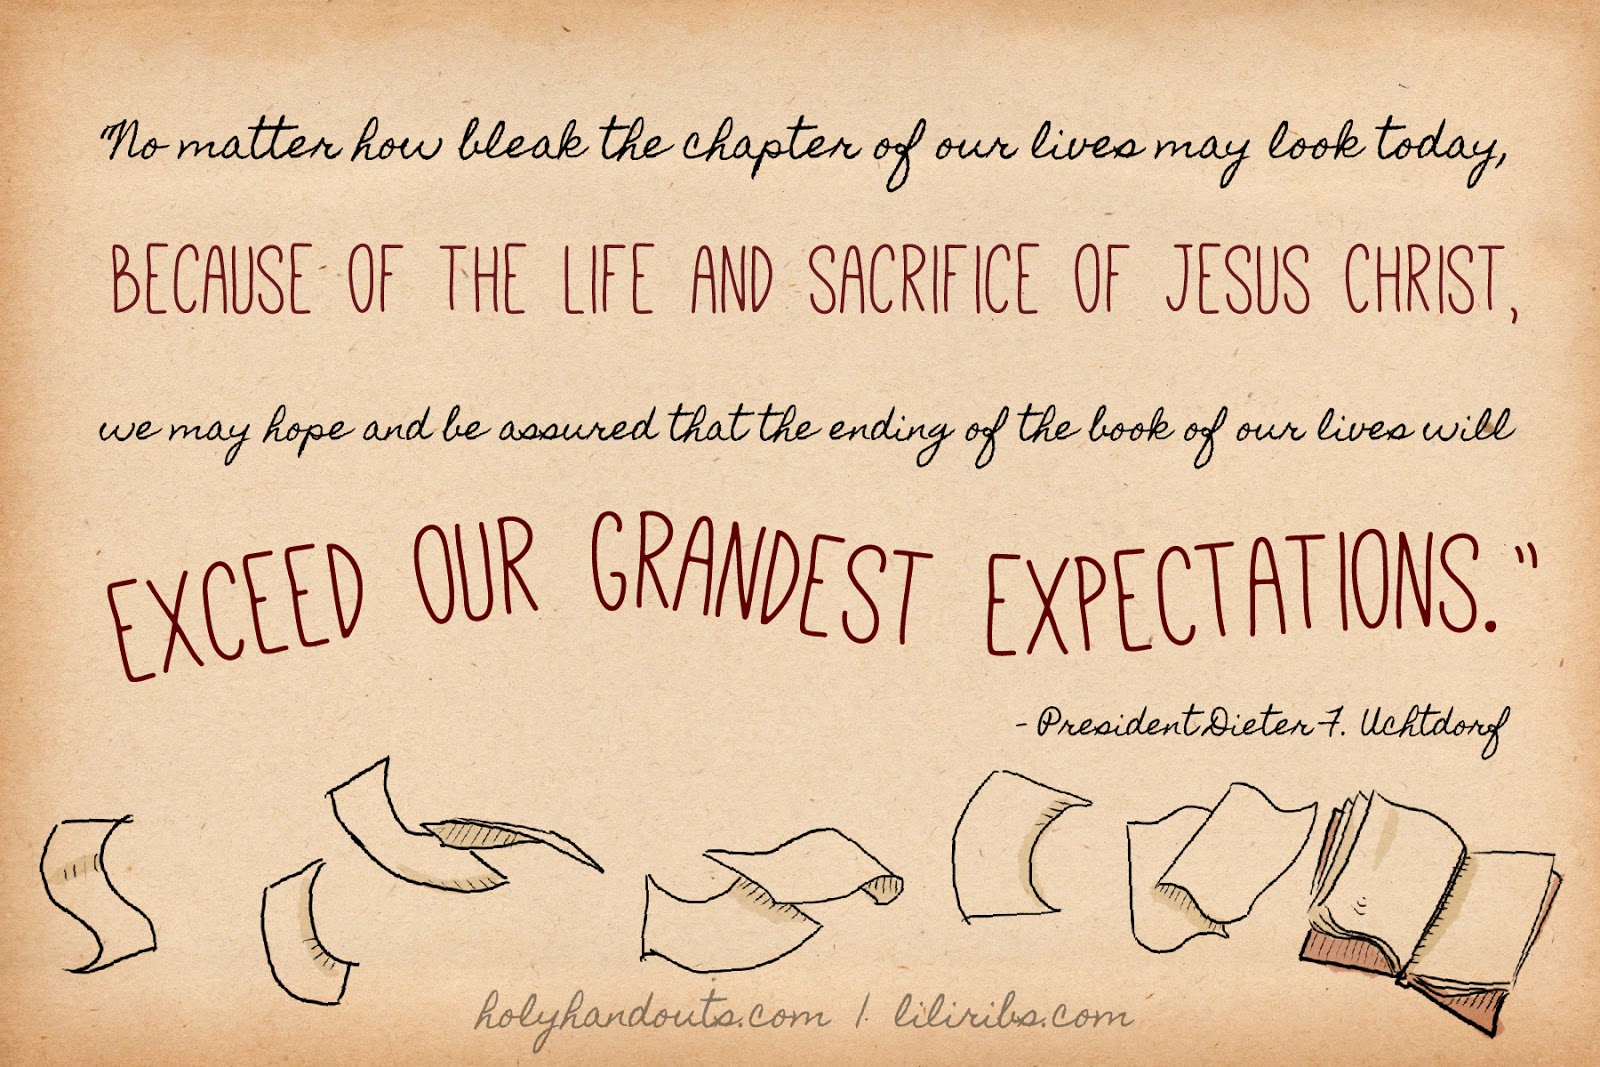 "No matter how bleak the chapter of our lives may look today,
BECAUSE OF THE LIFE AND SACRIFICE OF JESUS CHRIST,
we may hope and be assured that the ending of the book of our lives will
EXCEED OUR GRANDEST EXPECTATIONS."
- President Dieter F. Uchtdorf
holyhandouts.com | liliribs.com